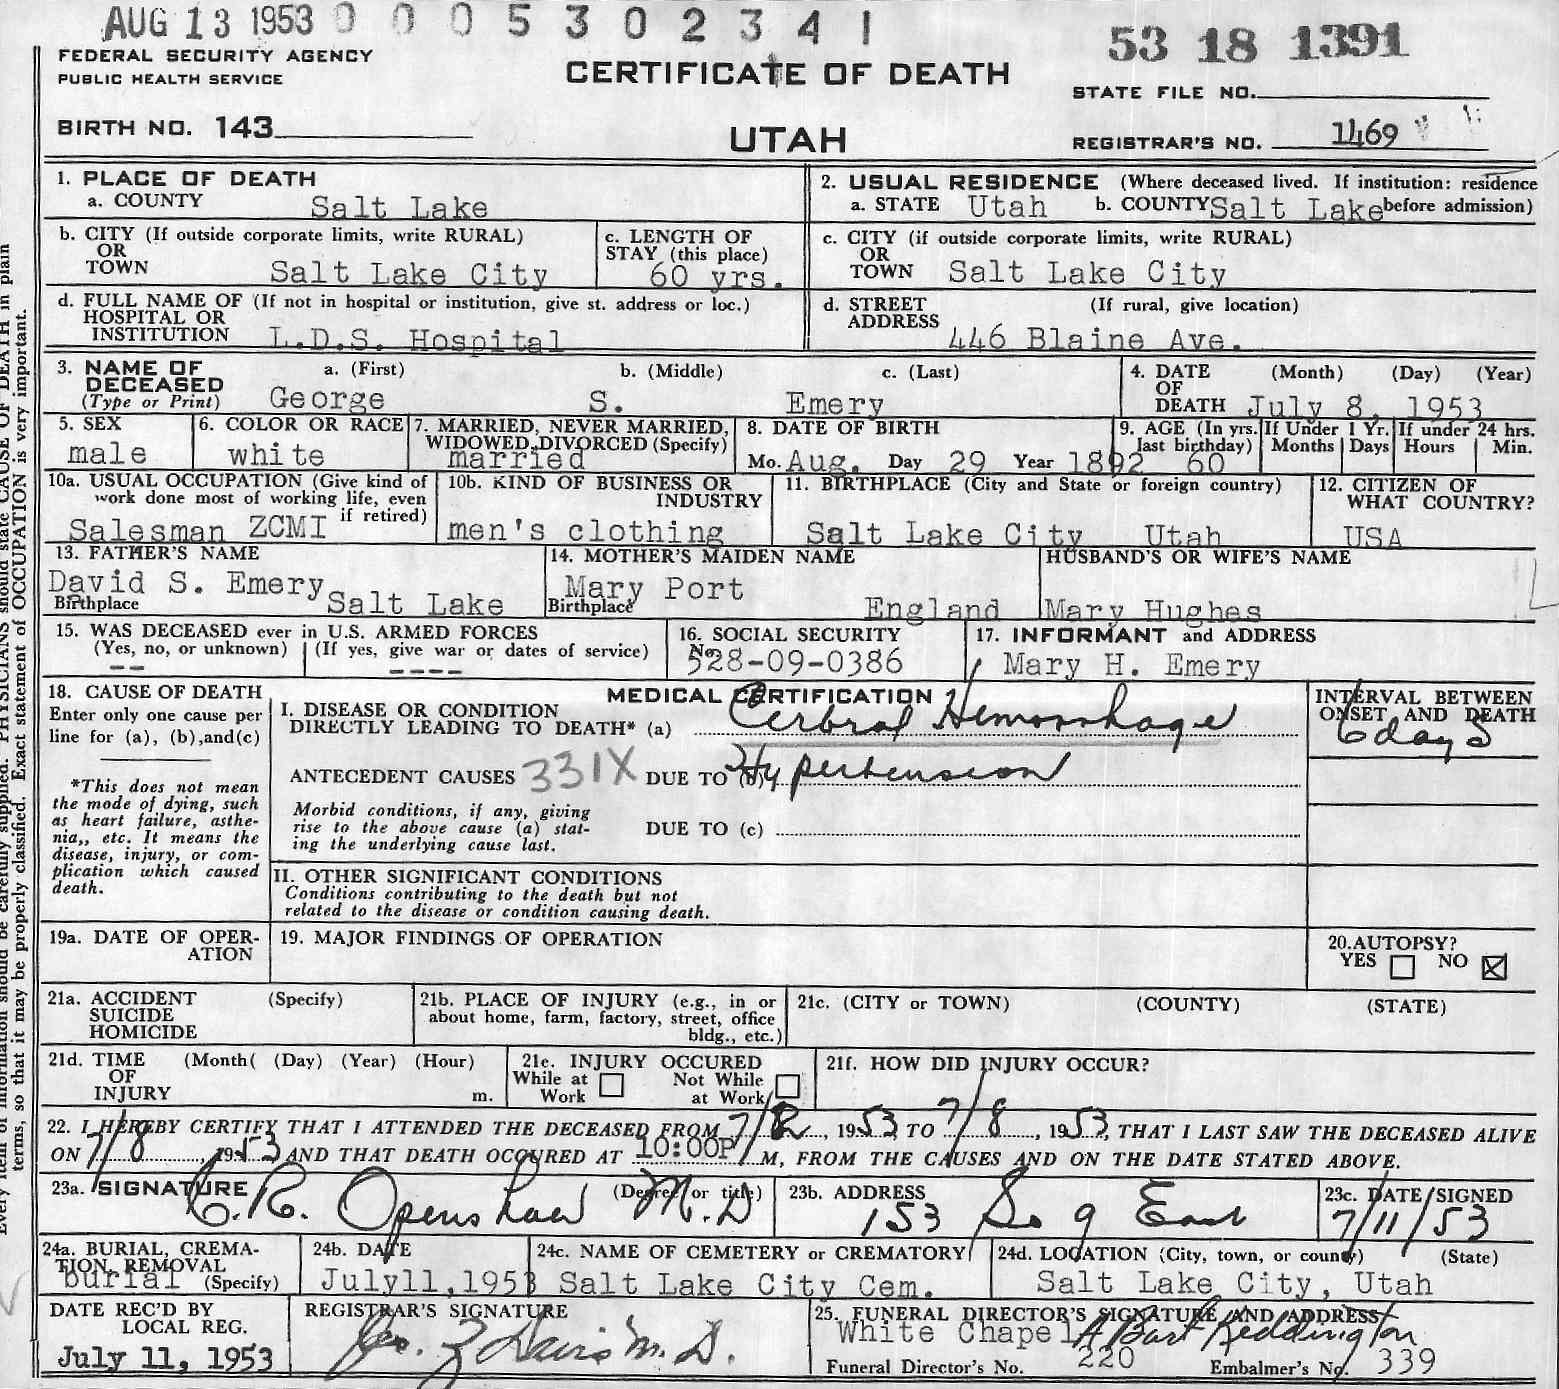 AUG 13 1953 0 0 0 5 3 0 2 3 4 1
53 18 1391
FEDERAL SECURITY AGENCY
PUBLIC HEALTH SERVICE
CERTIFICATE OF DEATH
STATE FILE NO.
BIRTH NO. 143
UTAH
REGISTRAR'S NO. 1469
1. PLACE OF DEATH
a. COUNTY Salt Lake
2. USUAL RESIDENCE (Where deceased lived. If institution: residence
a. STATE Utah b. COUNTY Salt Lake before admission)
b. CITY (If outside corporate limits, write RURAL)
OR
TOWN Salt Lake City
c. LENGTH OF
STAY (this place)
60 yrs.
c. CITY (if outside corporate limits, write RURAL)
OR
TOWN Salt Lake City
d. FULL NAME OF (If not in hospital or institution, give st. address or loc.)
HOSPITAL OR
INSTITUTION L.D.S. Hospital
d. STREET (If rural, give location)
ADDRESS 446 Blaine Ave.
3. NAME OF a. (First) b. (Middle) c. (Last)
DECEASED
(Type or Print) George S. Emery
4. DATE (Month) (Day) (Year)
OF
DEATH July 8, 1953
5. SEX
male
6. COLOR OR RACE
white
7. MARRIED, NEVER MARRIED,
WIDOWED, DIVORCED (Specify)
married
8. DATE OF BIRTH
Mo. Aug. Day 29 Year 1892
9. AGE (In yrs.
last birthday)
60
If Under 1 Yr.
Months Days
If under 24 hrs.
Hours Min.
10a. USUAL OCCUPATION (Give kind of
work done most of working life, even
if retired)
Salesman ZCMI
10b. KIND OF BUSINESS OR
INDUSTRY
men's clothing
11. BIRTHPLACE (City and State or foreign country)
Salt Lake City Utah
12. CITIZEN OF
WHAT COUNTRY?
USA
13. FATHER'S NAME
David S. Emery
Birthplace Salt Lake
14. MOTHER'S MAIDEN NAME
Mary Port
Birthplace England
HUSBAND'S OR WIFE'S NAME
Mary Hughes
15. WAS DECEASED ever in U.S. ARMED FORCES
(Yes, no, or unknown) (If yes, give war or dates of service)
-- ----
16. SOCIAL SECURITY
No.
528-09-0386
17. INFORMANT and ADDRESS
Mary H. Emery
18. CAUSE OF DEATH
Enter only one cause per
line for (a), (b), and (c)
*This does not mean
the mode of dying, such
as heart failure, asthe-
nia,, etc. It means the
disease, injury, or com-
plication which caused
death.
MEDICAL CERTIFICATION
I. DISEASE OR CONDITION
DIRECTLY LEADING TO DEATH* (a) Cerbral Hemorrhage
ANTECEDENT CAUSES 331X DUE TO (b) Hypertension
Morbid conditions, if any, giving
rise to the above cause (a) stat-
ing the underlying cause last.
DUE TO (c)
INTERVAL BETWEEN
ONSET AND DEATH
6 days
II. OTHER SIGNIFICANT CONDITIONS
Conditions contributing to the death but not
related to the disease or condition causing death.
19a. DATE OF OPER-
ATION
19. MAJOR FINDINGS OF OPERATION
20. AUTOPSY?
YES ☐ NO ☒
21a. ACCIDENT (Specify)
SUICIDE
HOMICIDE
21b. PLACE OF INJURY (e.g., in or
about home, farm, factory, street, office
bldg., etc.)
21c. (CITY or TOWN) (COUNTY) (STATE)
21d. TIME (Month( (Day) (Year) (Hour)
OF
INJURY m.
21e. INJURY OCCURED
While at Work ☐ Not While at Work ☐
21f. HOW DID INJURY OCCUR?
22. I HEREBY CERTIFY THAT I ATTENDED THE DECEASED FROM 7/2, 1953 TO 7/8, 1953, THAT I LAST SAW THE DECEASED ALIVE
ON 7/8, 1953 AND THAT DEATH OCCURED AT 10:00P M, FROM THE CAUSES AND ON THE DATE STATED ABOVE.
23a. SIGNATURE (Degree or title)
C.R. Openshaw M.D
23b. ADDRESS
153 So 9 East
23c. DATE SIGNED
7/11/53
24a. BURIAL, CREMA-
TION, REMOVAL
burial (Specify)
24b. DATE
July 11, 1953
24c. NAME OF CEMETERY or CREMATORY
Salt Lake City Cem.
24d. LOCATION (City, town, or county) (State)
Salt Lake City, Utah
DATE REC'D BY
LOCAL REG.
July 11, 1953
REGISTRAR'S SIGNATURE
Geo. Z Davis M.D.
25. FUNERAL DIRECTOR'S SIGNATURE AND ADDRESS
White Chapel A Bart Reddington
Funeral Director's No. 220 Embalmer's No. 339
terms, so that it may be properly classified. Exact statement of OCCUPATION is very important.